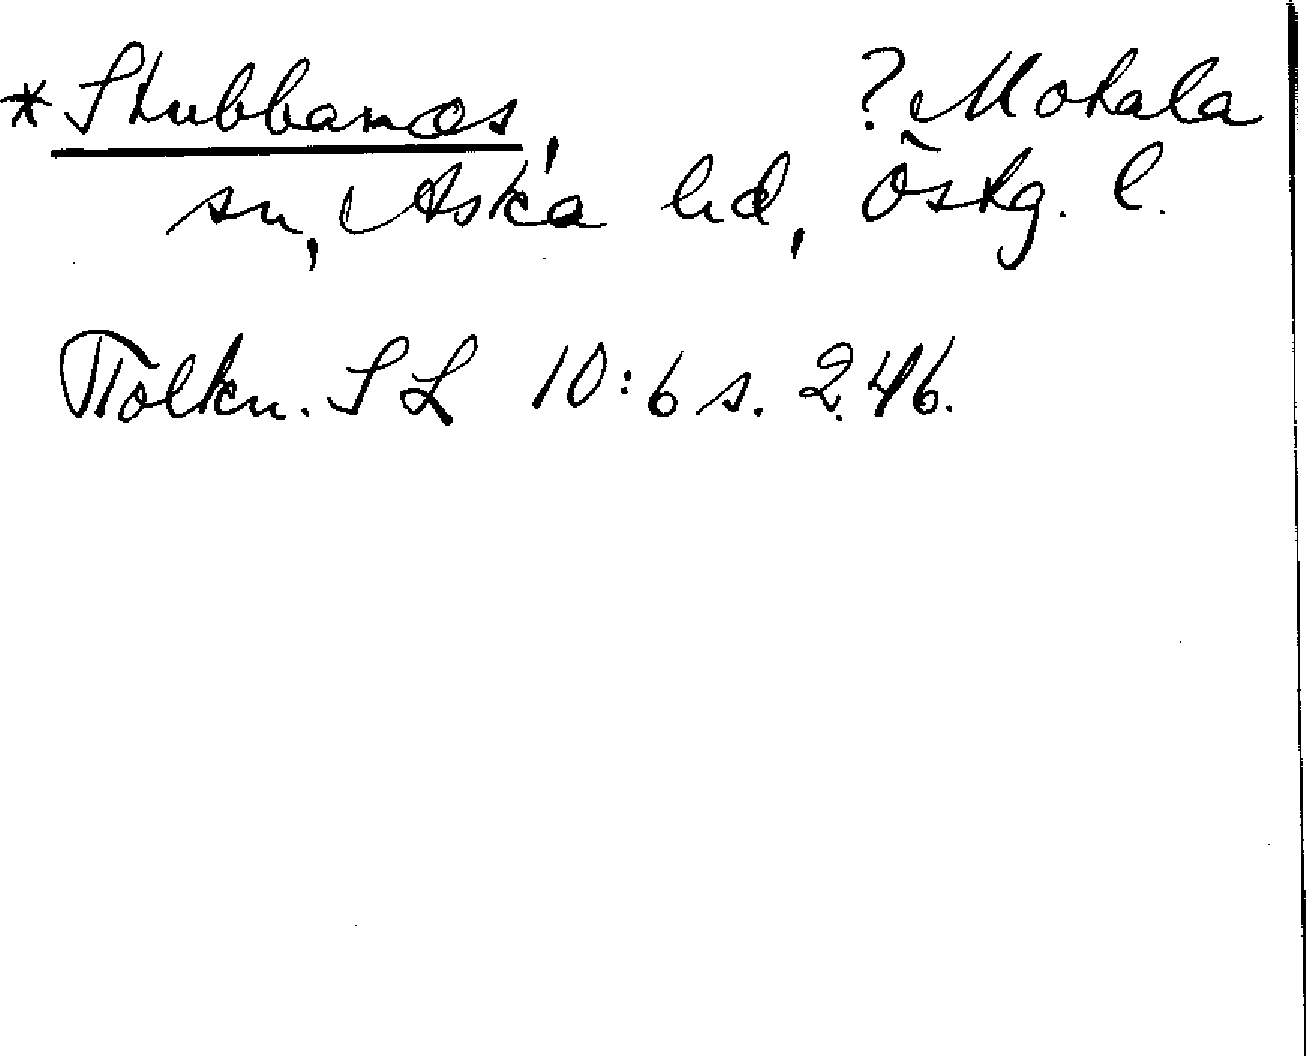 *Stubbamos, ? Motala
sn, Aska hd, Östg. l.
Tolkn. SL 10:6 s. 246.